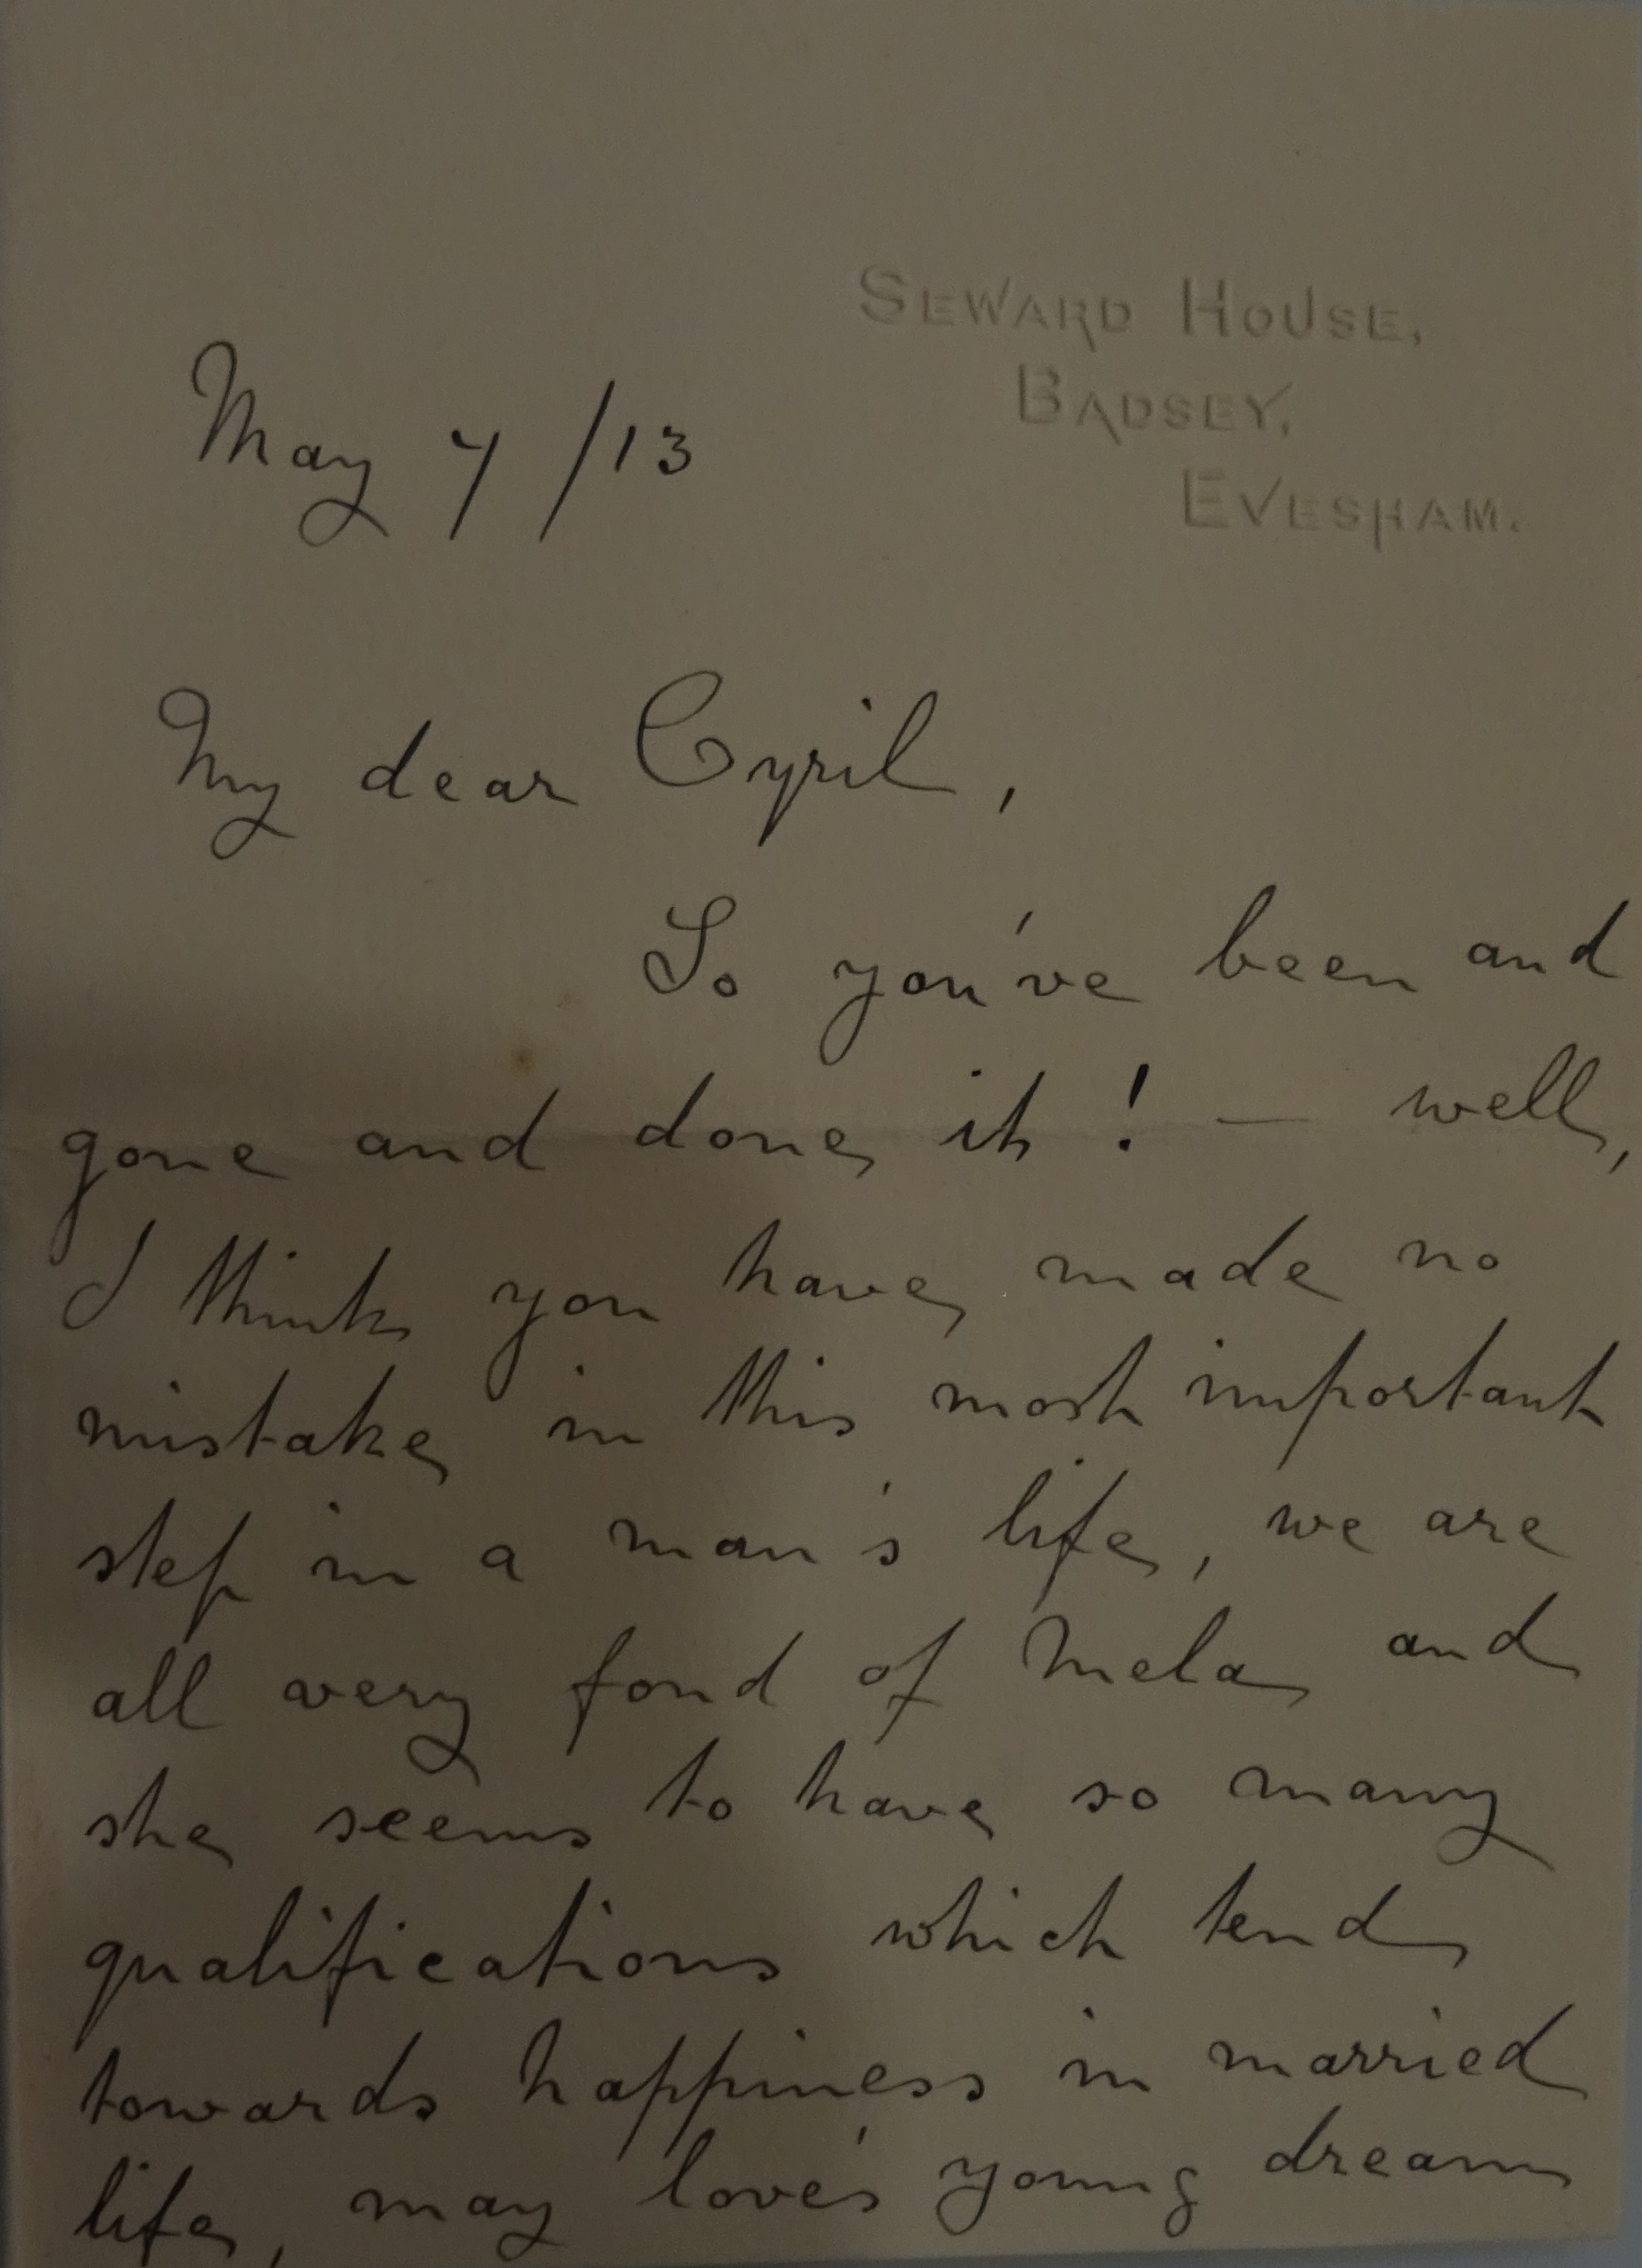 SEWARD HOUSE,
BADSEY,
EVESHAM.
May 7/13
My dear Cyril,
So you've been and
gone and done it! — well,
I think you have made no
mistake in this most important
step in a man's life, we are
all very fond of Mela and
she seems to have so many
qualifications which tend
towards happiness in married
life, may love's young dream